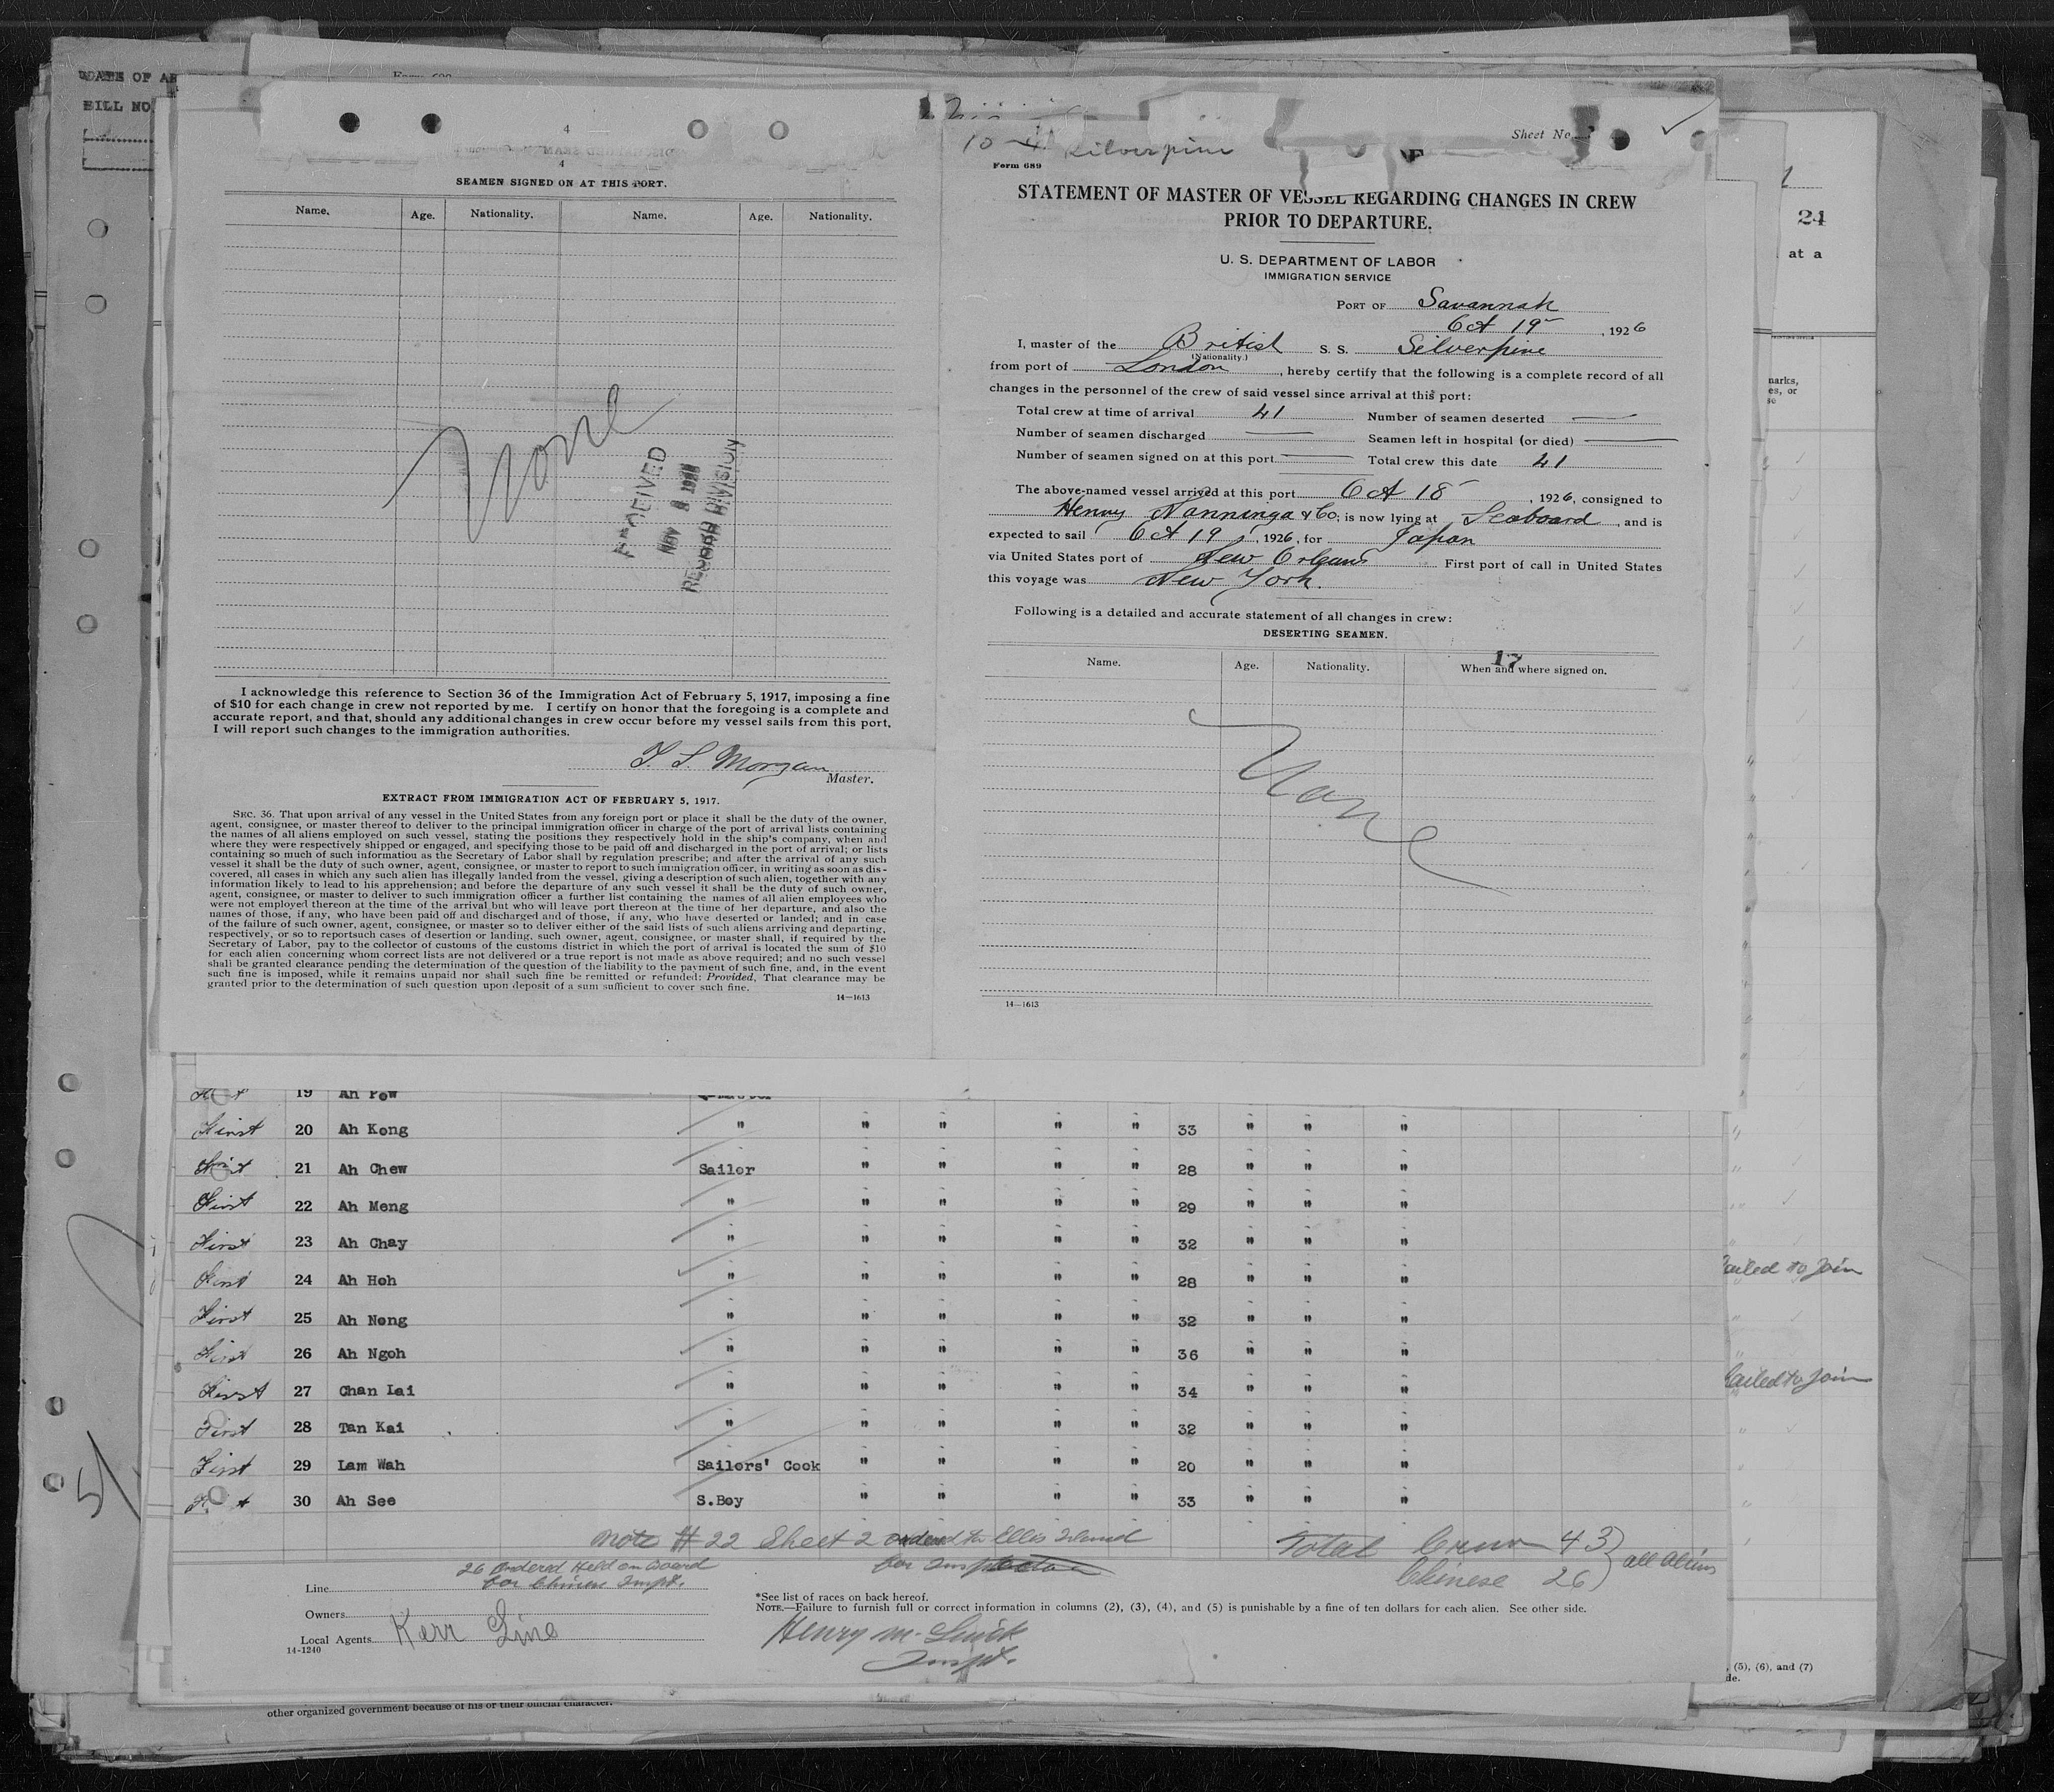 DATE OF AR
BILL NO
4
4
SEAMEN SIGNED ON AT THIS PORT.
Name. Age. Nationality. Name. Age. Nationality.
None
RECEIVED
NOV 8
RECORD DIVISION
I acknowledge this reference to Section 36 of the Immigration Act of February 5, 1917, imposing a fine
of $10 for each change in crew not reported by me. I certify on honor that the foregoing is a complete and
accurate report, and that, should any additional changes in crew occur before my vessel sails from this port,
I will report such changes to the immigration authorities.
Morgan
Master.
EXTRACT FROM IMMIGRATION ACT OF FEBRUARY 5, 1917.
SEC. 36. That upon arrival of any vessel in the United States from any foreign port or place it shall be the duty of the owner,
agent, consignee, or master thereof to deliver to the principal immigration officer in charge of the port of arrival lists containing
the names of all aliens employed on such vessel, stating the positions they respectively hold in the ship's company, when and
where they were respectively shipped or engaged, and specifying those to be paid off and discharged in the port of arrival; or lists
containing so much of such information as the Secretary of Labor shall by regulation prescribe; and after the arrival of any such
vessel it shall be the duty of such owner, agent, consignee, or master to report to such immigration officer, in writing as soon as dis-
covered, all cases in which any such alien has illegally landed from the vessel, giving a description of such alien, together with any
information likely to lead to his apprehension; and before the departure of any such vessel it shall be the duty of such owner,
agent, consignee, or master to deliver to such immigration officer a further list containing the names of all alien employees who
were not employed thereon at the time of the arrival but who will leave port thereon at the time of her departure, and also the
names of those, if any, who have been paid off and discharged and of those, if any, who have deserted or landed; and in case
of the failure of such owner, agent, consignee, or master so to deliver either of the said lists of such aliens arriving and departing,
respectively, or so to report such cases of desertion or landing, such owner, agent, consignee, or master shall, if required by the
Secretary of Labor, pay to the collector of customs of the customs district in which the port of arrival is located the sum of $10
for each alien concerning whom correct lists are not delivered or a true report is not made as above required; and no such vessel
shall be granted clearance pending the determination of the question of the liability to the payment of such fine, and, in the event
such fine is imposed, while it remains unpaid nor shall such fine be remitted or refunded: Provided, That clearance may be
granted prior to the determination of such question upon deposit of a sum sufficient to cover such fine.
14—1613
Silverpine
Sheet No.
Form 689
STATEMENT OF MASTER OF VESSEL REGARDING CHANGES IN CREW
PRIOR TO DEPARTURE.
U. S. DEPARTMENT OF LABOR
IMMIGRATION SERVICE
PORT OF Savannah
Oct 19 , 1926
I, master of the British S. S. Silverpine
(Nationality.)
from port of London , hereby certify that the following is a complete record of all
changes in the personnel of the crew of said vessel since arrival at this port:
Total crew at time of arrival 41 Number of seamen deserted —
Number of seamen discharged — Seamen left in hospital (or died) —
Number of seamen signed on at this port — Total crew this date 41
The above-named vessel arrived at this port Oct 18 , 1926, consigned to
Henry Nanninga & Co; is now lying at Seaboard , and is
expected to sail Oct 19 , 1926, for Japan
via United States port of New Orleans First port of call in United States
this voyage was New York.
Following is a detailed and accurate statement of all changes in crew:
DESERTING SEAMEN.
17
Name. Age. Nationality. When and where signed on.
None
14—1613
24
at a
marks,
es, or
se
19 Ah Pow
First 20 Ah Kong " " " " " 33 " " "
First 21 Ah Chew Sailor " " " " 28 " " "
First 22 Ah Meng " " " " " 29 " " "
First 23 Ah Chay " " " " " 32 " " "
First 24 Ah Hoh " " " " " 28 " " "
First 25 Ah Nong " " " " " 32 " " "
First 26 Ah Ngoh " " " " " 36 " " "
First 27 Chan Lai " " " " " 34 " " "
First 28 Tan Kai " " " " " 32 " " "
First 29 Lam Wah Sailors' Cook " " " " 20 " " "
30 Ah See S.Boy " " " " 33 " " "
Failed to join
Failed to join
51
Note # 22 Sheet 2 ordered to Ellis Island
for Inspection
Total Crew 43
Chinese 26
all aliens
26 Ordered Held on Board
for Chinese Inspt.
Line
Owners
Local Agents Kerr Line
14-1240
*See list of races on back hereof.
NOTE.—Failure to furnish full or correct information in columns (2), (3), (4), and (5) is punishable by a fine of ten dollars for each alien. See other side.
Henry M.
Inspt.
, (5), (6), and (7)
de.
other organized government because of his or their official character.